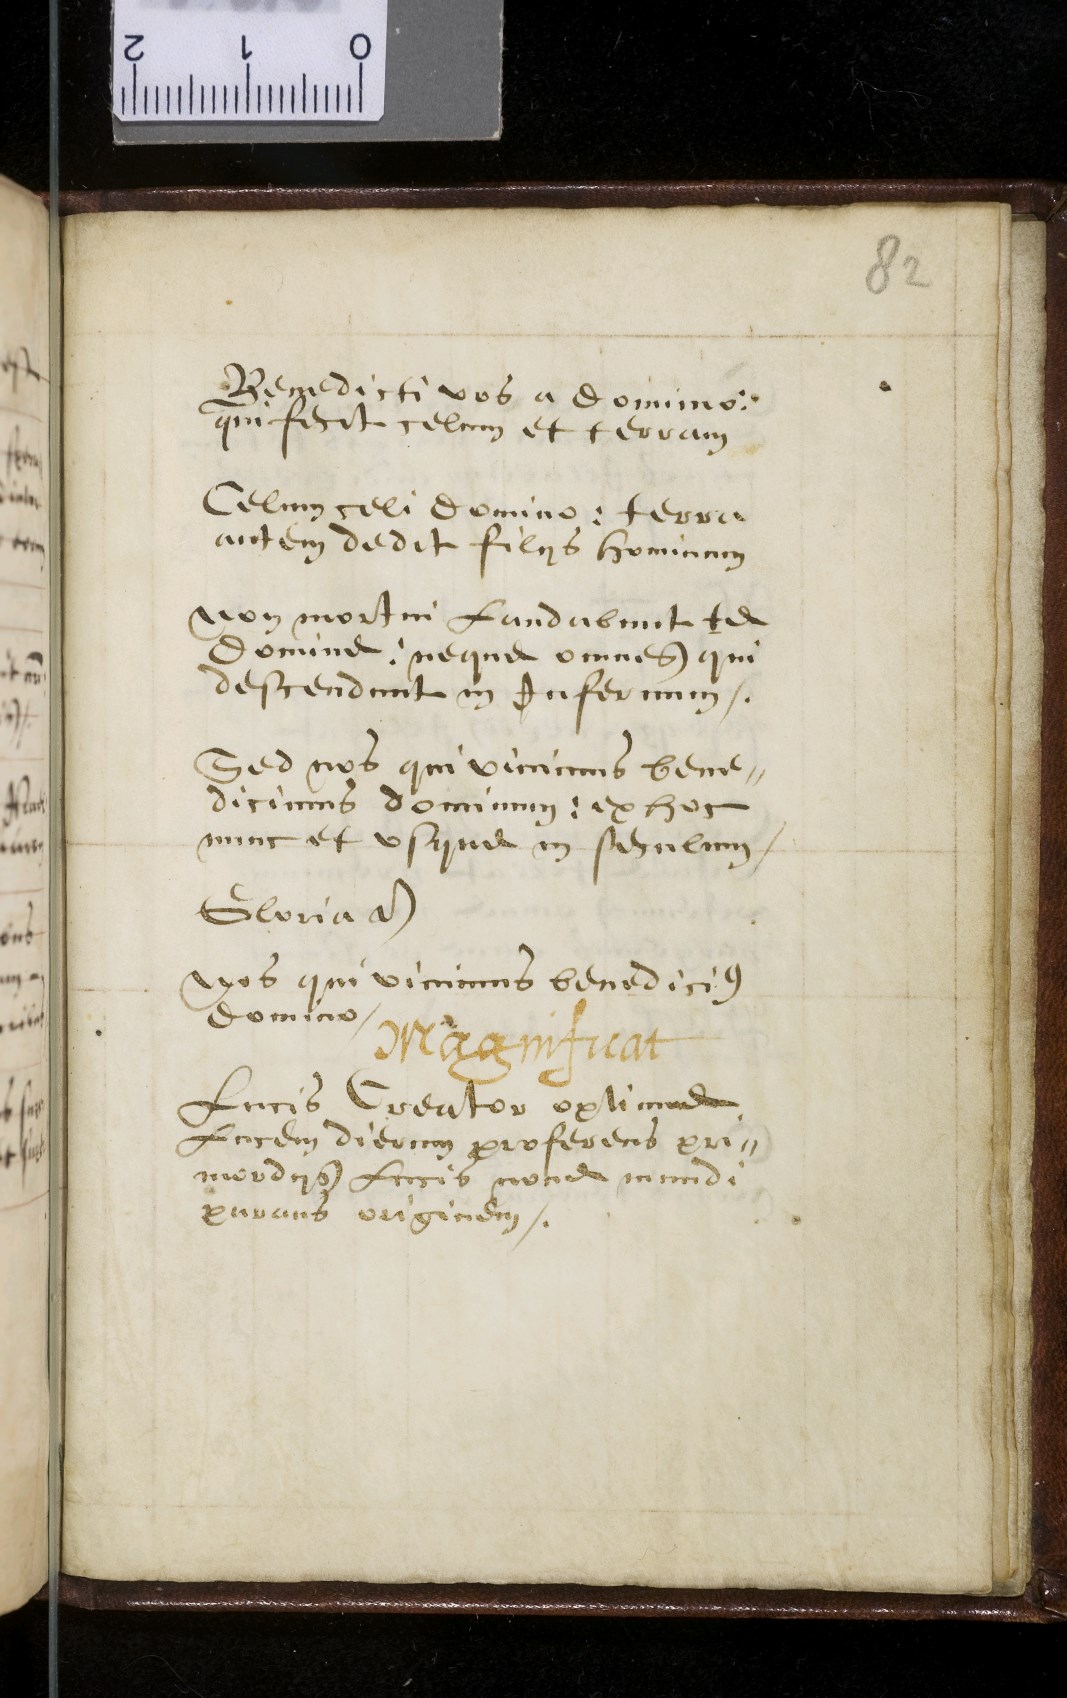 2 1 0
82
Benedicti vos a domino:
qui fecit celum et terram
Celum celi domino: terra
autem dedit filijs hominum
Non mortui laudabunt te
domine: neque omnes qui
descendunt in Infernum/.
Sed nos qui viuimus bene„
dicimus dominum: ex hoc
nunc et vsque in seculum/
Gloria
Nos qui viuimus benedicimꝰ
domino/
Magnificat
Lucis Creator optime
Lucem dierum proferens pri„
mordijs lucis noue mundi
parans originem/.